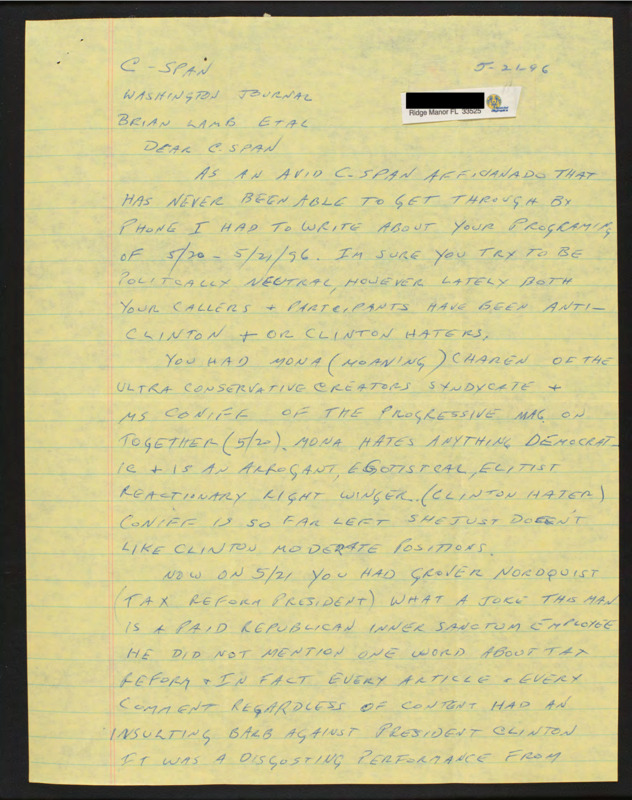 C-SPAN 5-21-96
WASHINGTON JOURNAL
BRIAN LAMB ETAL
Ridge Manor FL 33525
DEAR C.SPAN
AS AN AVID C-SPAN AFFICIANADO THAT
HAS NEVER BEEN ABLE TO GET THROUGH BY
PHONE I HAD TO WRITE ABOUT YOUR PROGRAMING
OF 5/20 - 5/21/96. IM SURE YOU TRY TO BE
POLITCALLY NEUTRAL, HOWEVER LATELY BOTH
YOUR CALLERS + PARTICIPANTS HAVE BEEN ANTI-
CLINTON + OR CLINTON HATERS.
YOU HAD MONA (MOANING) CHAREN OF THE
ULTRA CONSERVATIVE CREATORS SYNDYCATE +
MS CONIFF OF THE PROGRESSIVE MAG. ON
TOGETHER (5/20). MONA HATES ANYTHING DEMOCRAT-
IC + IS AN ARROGANT, EGOTISTCAL, ELITIST
REACTIONARY RIGHT WINGER. (CLINTON HATER)
CONIFF IS SO FAR LEFT SHE JUST DOESN'T
LIKE CLINTON MODERATE POSITIONS.
NOW ON 5/21 YOU HAD GROVER NORDQUIST
(TAX REFORM PRESIDENT) WHAT A JOKE THIS MAN
IS A PAID REPUBLICAN INNER SANCTUM EMPLOYEE
HE DID NOT MENTION ONE WORD ABOUT TAX
REFORM + IN FACT EVERY ARTICLE + EVERY
COMMENT REGARDLESS OF CONTENT HAD AN
INSULTING BARB AGAINST PRESIDENT CLINTON
IT WAS A DISGOSTING PERFORMANCE FROM